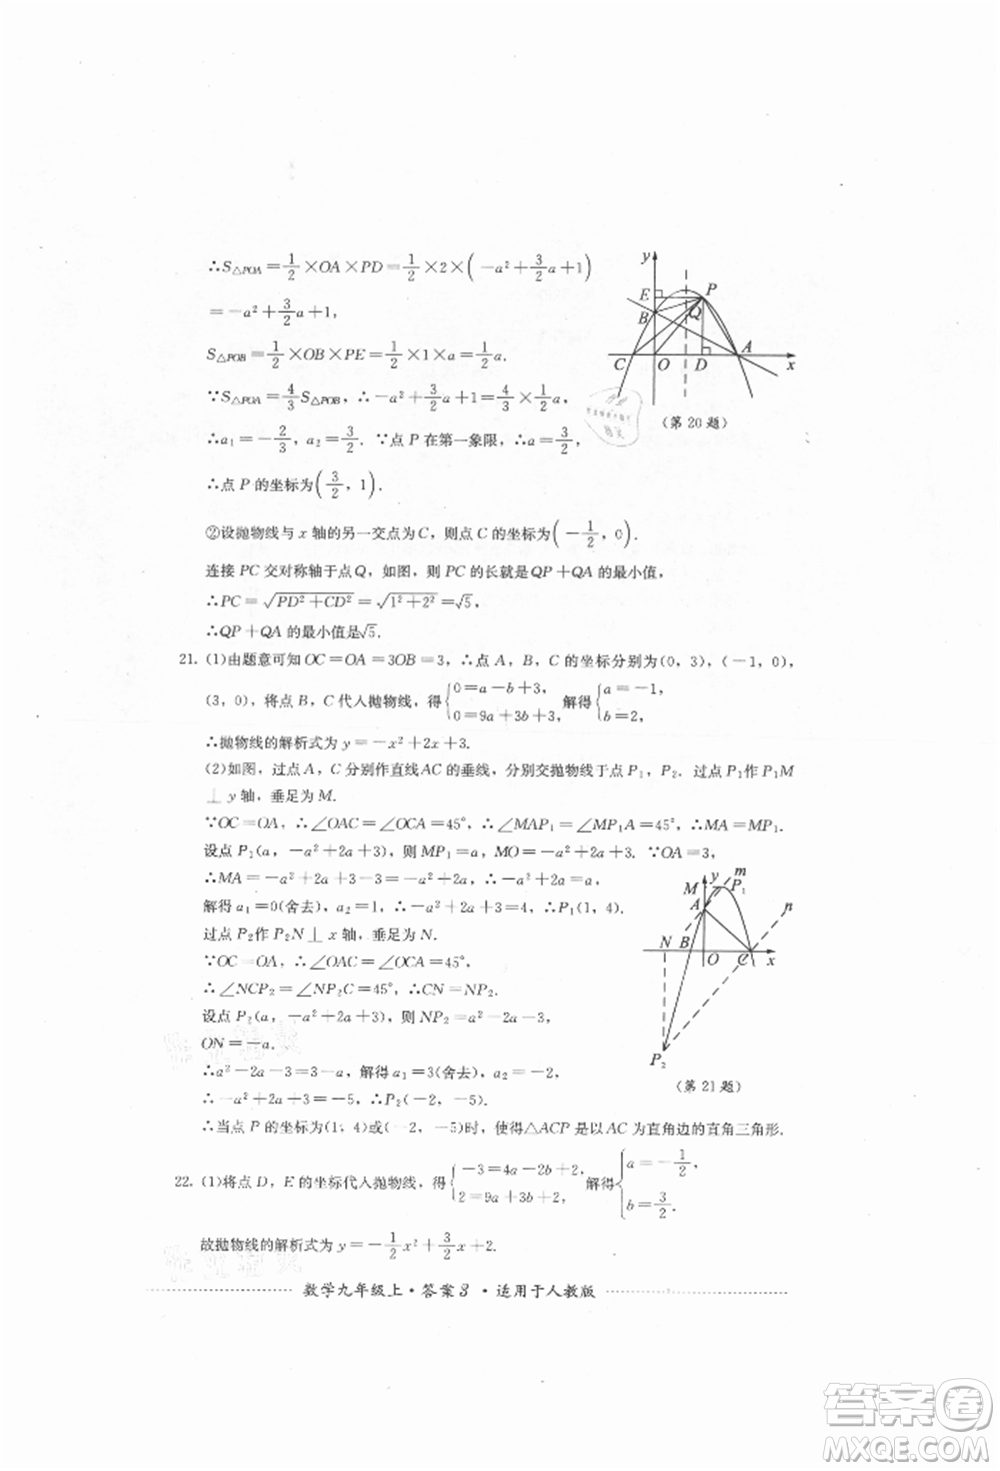 ∴S△POA=1/2×OA×PD=1/2×2×(-a²+3/2a+1)
=-a²+3/2a+1,
S△POB=1/2×OB×PE=1/2×1×a=1/2a.
∵S△POA=4/3S△POB,∴-a²+3/2a+1=4/3×1/2a,
∴a₁=-2/3,a₂=3/2.∵点P在第一象限,∴a=3/2,
∴点P的坐标为(3/2,1).
y
E
P
B
Q
C
O
D
A
x
(第20题)
②设抛物线与x轴的另一交点为C,则点C的坐标为(-1/2,0).
连接PC交对称轴于点Q,如图,则PC的长就是QP+QA的最小值,
∴PC=√(PD²+CD²)=√(1²+2²)=√5,
∴QP+QA的最小值是√5.
21. (1)由题意可知OC=OA=3OB=3,∴点A,B,C的坐标分别为(0,3),(-1,0),
(3,0),将点B,C代入抛物线,得{0=a-b+3, 0=9a+3b+3, 解得{a=-1, b=2,
∴抛物线的解析式为y=-x²+2x+3.
(2)如图,过点A,C分别作直线AC的垂线,分别交抛物线于点P₁,P₂,过点P₁作P₁M
⊥y轴,垂足为M.
∵OC=OA,∴∠OAC=∠OCA=45°,∴∠MAP₁=∠MP₁A=45°,∴MA=MP₁.
设点P₁(a,-a²+2a+3),则MP₁=a,MO=-a²+2a+3.∵OA=3,
∴MA=-a²+2a+3-3=a,
解得a₁=0(舍去),a₂=1,∴-a²+2a+3=4,∴P₁(1,4).
过点P₂作P₂N⊥x轴,垂足为N.
∵OC=OA,∴∠OAC=∠OCA=45°,
∴∠NCP₂=∠NP₂C=45°,∴CN=NP₂.
设点P₂(a,-a²+2a+3),则NP₂=a²-2a-3,
ON=-a.
∴a²-2a-3=-a+3,解得a₁=3(舍去),a₂=-2,
∴-a²+2a+3=-5,∴P₂(-2,-5).
y
m
M
P₁
A
n
N
B
O
C
x
P₂
(第21题)
∴当点P的坐标为(1,4)或(-2,-5)时,使得△ACP是以AC为直角边的直角三角形.
22. (1)将点D,E的坐标代入抛物线,得{-3=4a-2b+2, 2=9a+3b+2, 解得{a=-1/2, b=3/2.
故抛物线的解析式为y=-1/2x²+3/2x+2.
数学九年级上·答案3·适用于人教版
答案卷
MXQE.COM